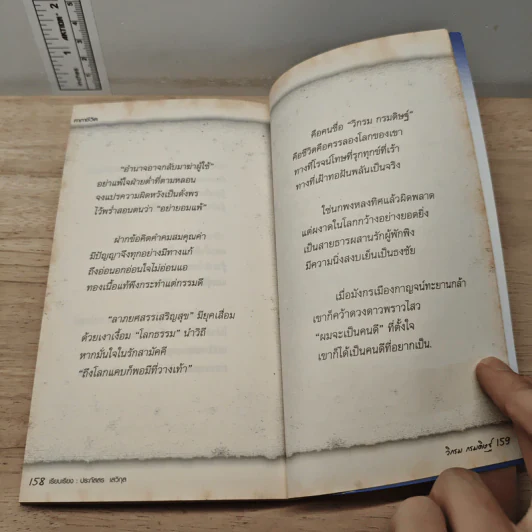 คาถาชีวิต
"อำนาจอาจกลับมาฆ่าผู้ใช้"
อย่าแพ้ใจฝ่ายต่ำที่ตามหลอน
จงแปรความผิดหวังเป็นดั่งพร
ไว้พร่ำสอนตนว่า "อย่ายอมแพ้"
ฝากข้อคิดคำคมสมคุณค่า
มีปัญญาจึงทุกอย่างมีทางแก้
ถึงอ่อนนอกอ่อนใจไม่อ่อนแอ
ทองเนื้อแท้พึงกระทำแต่กรรมดี
"ลาภยศสรรเสริญสุข" มียุคเสื่อม
ด้วยเงาเงื้อม "โลกธรรม" นำวิถี
หากมั่นใจในรักสามัคคี
"ถึงโลกแคบก็พอมีที่วางเท้า"
158 เรียบเรียง : ประภัสสร เสวิกุล
คือคนชื่อ "วิกรม กรมดิษฐ์"
คือชีวิตคือครรลองโลกของเขา
ทางที่โรจน์โทษที่รุกทุกข์ที่เร้า
ทางที่เฝ้าทอฝันพลันเป็นจริง
ใช่นกพงหลงทิศแล้วผิดพลาด
แต่ผงาดในโลกกว้างอย่างยอดยิ่ง
เป็นสายธารผสานรักผู้พักพิง
มีความนิ่งสงบเย็นเป็นธงชัย
เมื่อมังกรเมืองกาญจน์ทะยานกล้า
เขาก็คว้าดวงดาวพราวไสว
"ผมจะเป็นคนดี" ที่ตั้งใจ
เขาก็ได้เป็นคนดีที่อยากเป็น.
วิกรม กรมดิษฐ์ 159